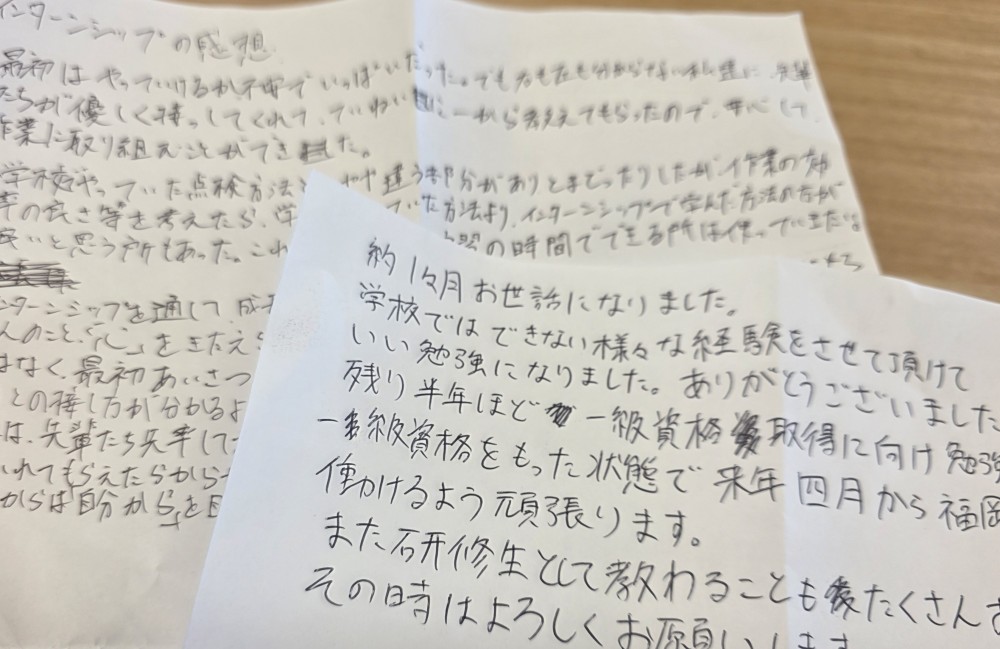 インターンシップの感想
最初はやっていけるか不安でいっぱいだった。でも右も左も分からない私達に、先輩
たちが優しく接してくれて、ていねいに一から教えてもらったので、安心して、
作業に取り組むことができました。
学校でやっていた点検方法とやや違う部分がありとまどったりしたが、作業の効
率の良さ等を考えたら、学 ていた方法より、インターンシップで学んだ方法の方が
良いと思う所もあった。これ の時間でできる所は使って
ンターンシップを通して、成
人のこと、「心」をきたえ
はなく、最初あいさつ
との接し方が分かるよ
は、先輩たち先率して
いれてもらえたらから
からは自分から
約1ヶ月お世話になりました。
学校ではできない様々な経験をさせて頂けて
いい勉強になりました。ありがとうございました
残り半年ほど一級資格取得に向け勉強
一級資格をもった状態で来年四月から福岡
働けるよう頑張ります。
また研修生として教わることもたくさん
その時はよろしくお願いします